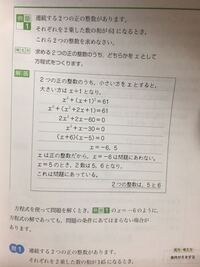 例題
1
連続する2つの正の整数があります。
それぞれを2乗した数の和が61になるとき,
これら2つの整数を求めなさい。
考え方 求める2つの正の整数のうち,どちらかをxとして
方程式をつくります。
解答
2つの正の整数のうち,小さい方をxとすると,
大きい方はx+1となり,
x²+(x+1)²=61
x²+(x²+2x+1)=61
2x²+2x-60=0
x²+x-30=0
(x+6)(x-5)=0
x=-6, 5
xは正の整数だから,x=-6は問題にあわない。
x=5のとき,2数は5,6となり,
これは問題にあっている。
2つの整数は,5と6
方程式を使って問題を解くとき,例題1のx=-6のように,
方程式の解であっても,問題の条件にあてはまらない場合が
あります。
問1
連続する2つの正の整数があります。
それぞれを2乗した数の和が145になるとき,